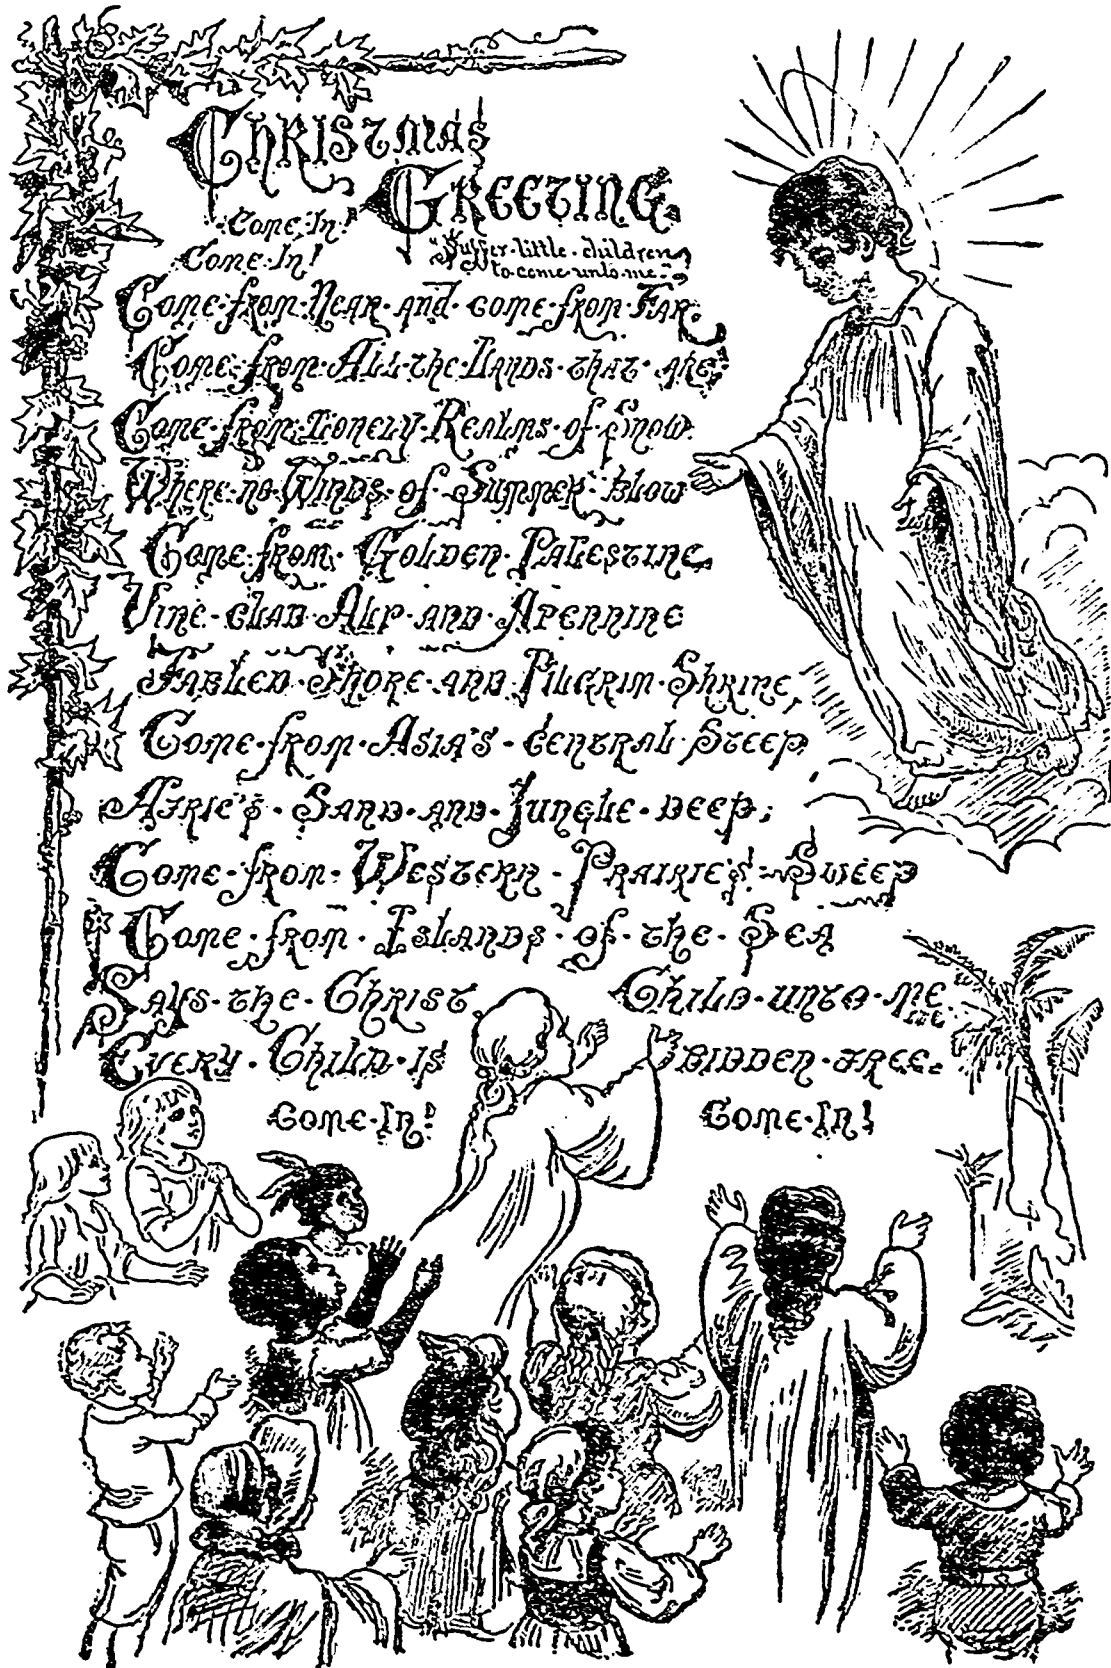 Christmas
Greeting.
Come In!
"Suffer little children
Come In!
to come unto me."
Come from Near and come from Far.
Come from All the Lands that are;
Come from Lonely Realms of Snow
Where no Winds of Summer blow
Come from Golden Palestine
Vine clad Alp and Apennine
Fabled Shore and Pilgrim Shrine,
Come from Asia's central Steep,
Afric's Sand and Jungle deep;
Come from Western Prairie's Sweep
Come from Islands of the Sea
Says the Christ Child unto me
Every Child is bidden free.
Come In! Come In!